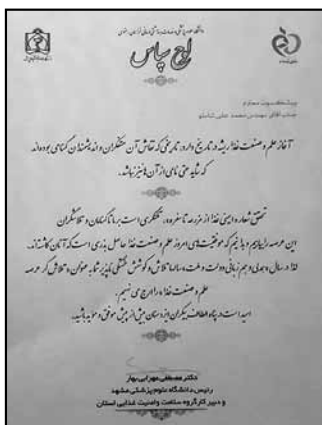 لوح سپاس
پیشکسوت محترم
جناب آقای مهندس محمد علی شاملو
آغاز علم و صنعت غذا ریشه در تاریخ دارد، تاریخی که نقاش آن متفکران و اندیشمندان گمنامی بوده‌اند
که شاید حتی نامی از آن‌ها نیز نباشد.
تحقق شعار ایمنی غذا از مزرعه تا سفره و، تلنگری است بر ما تا کسان و تلاشگران
این عرصه را بیابیم و بدانیم که موفقیت‌های امروز علم و صنعت غذا حاصل بذری است که آنان کاشته‌اند.
لذا در سال همدلی و هم زبانی دولت و ملت، سالها تلاش و کوشش خستگی ناپذیر شما به عنوان تلاش گر عرصه
علم و صنعت غذا را ارج می نهیم.
امید است در پناه الطاف بیکران ایزد منان بیش از پیش موفق و موید باشید.
دکتر مصطفی مهرابی بهار
رئیس دانشگاه علوم پزشکی مشهد
و دبیر کارگروه سلامت وامنیت غذایی استان